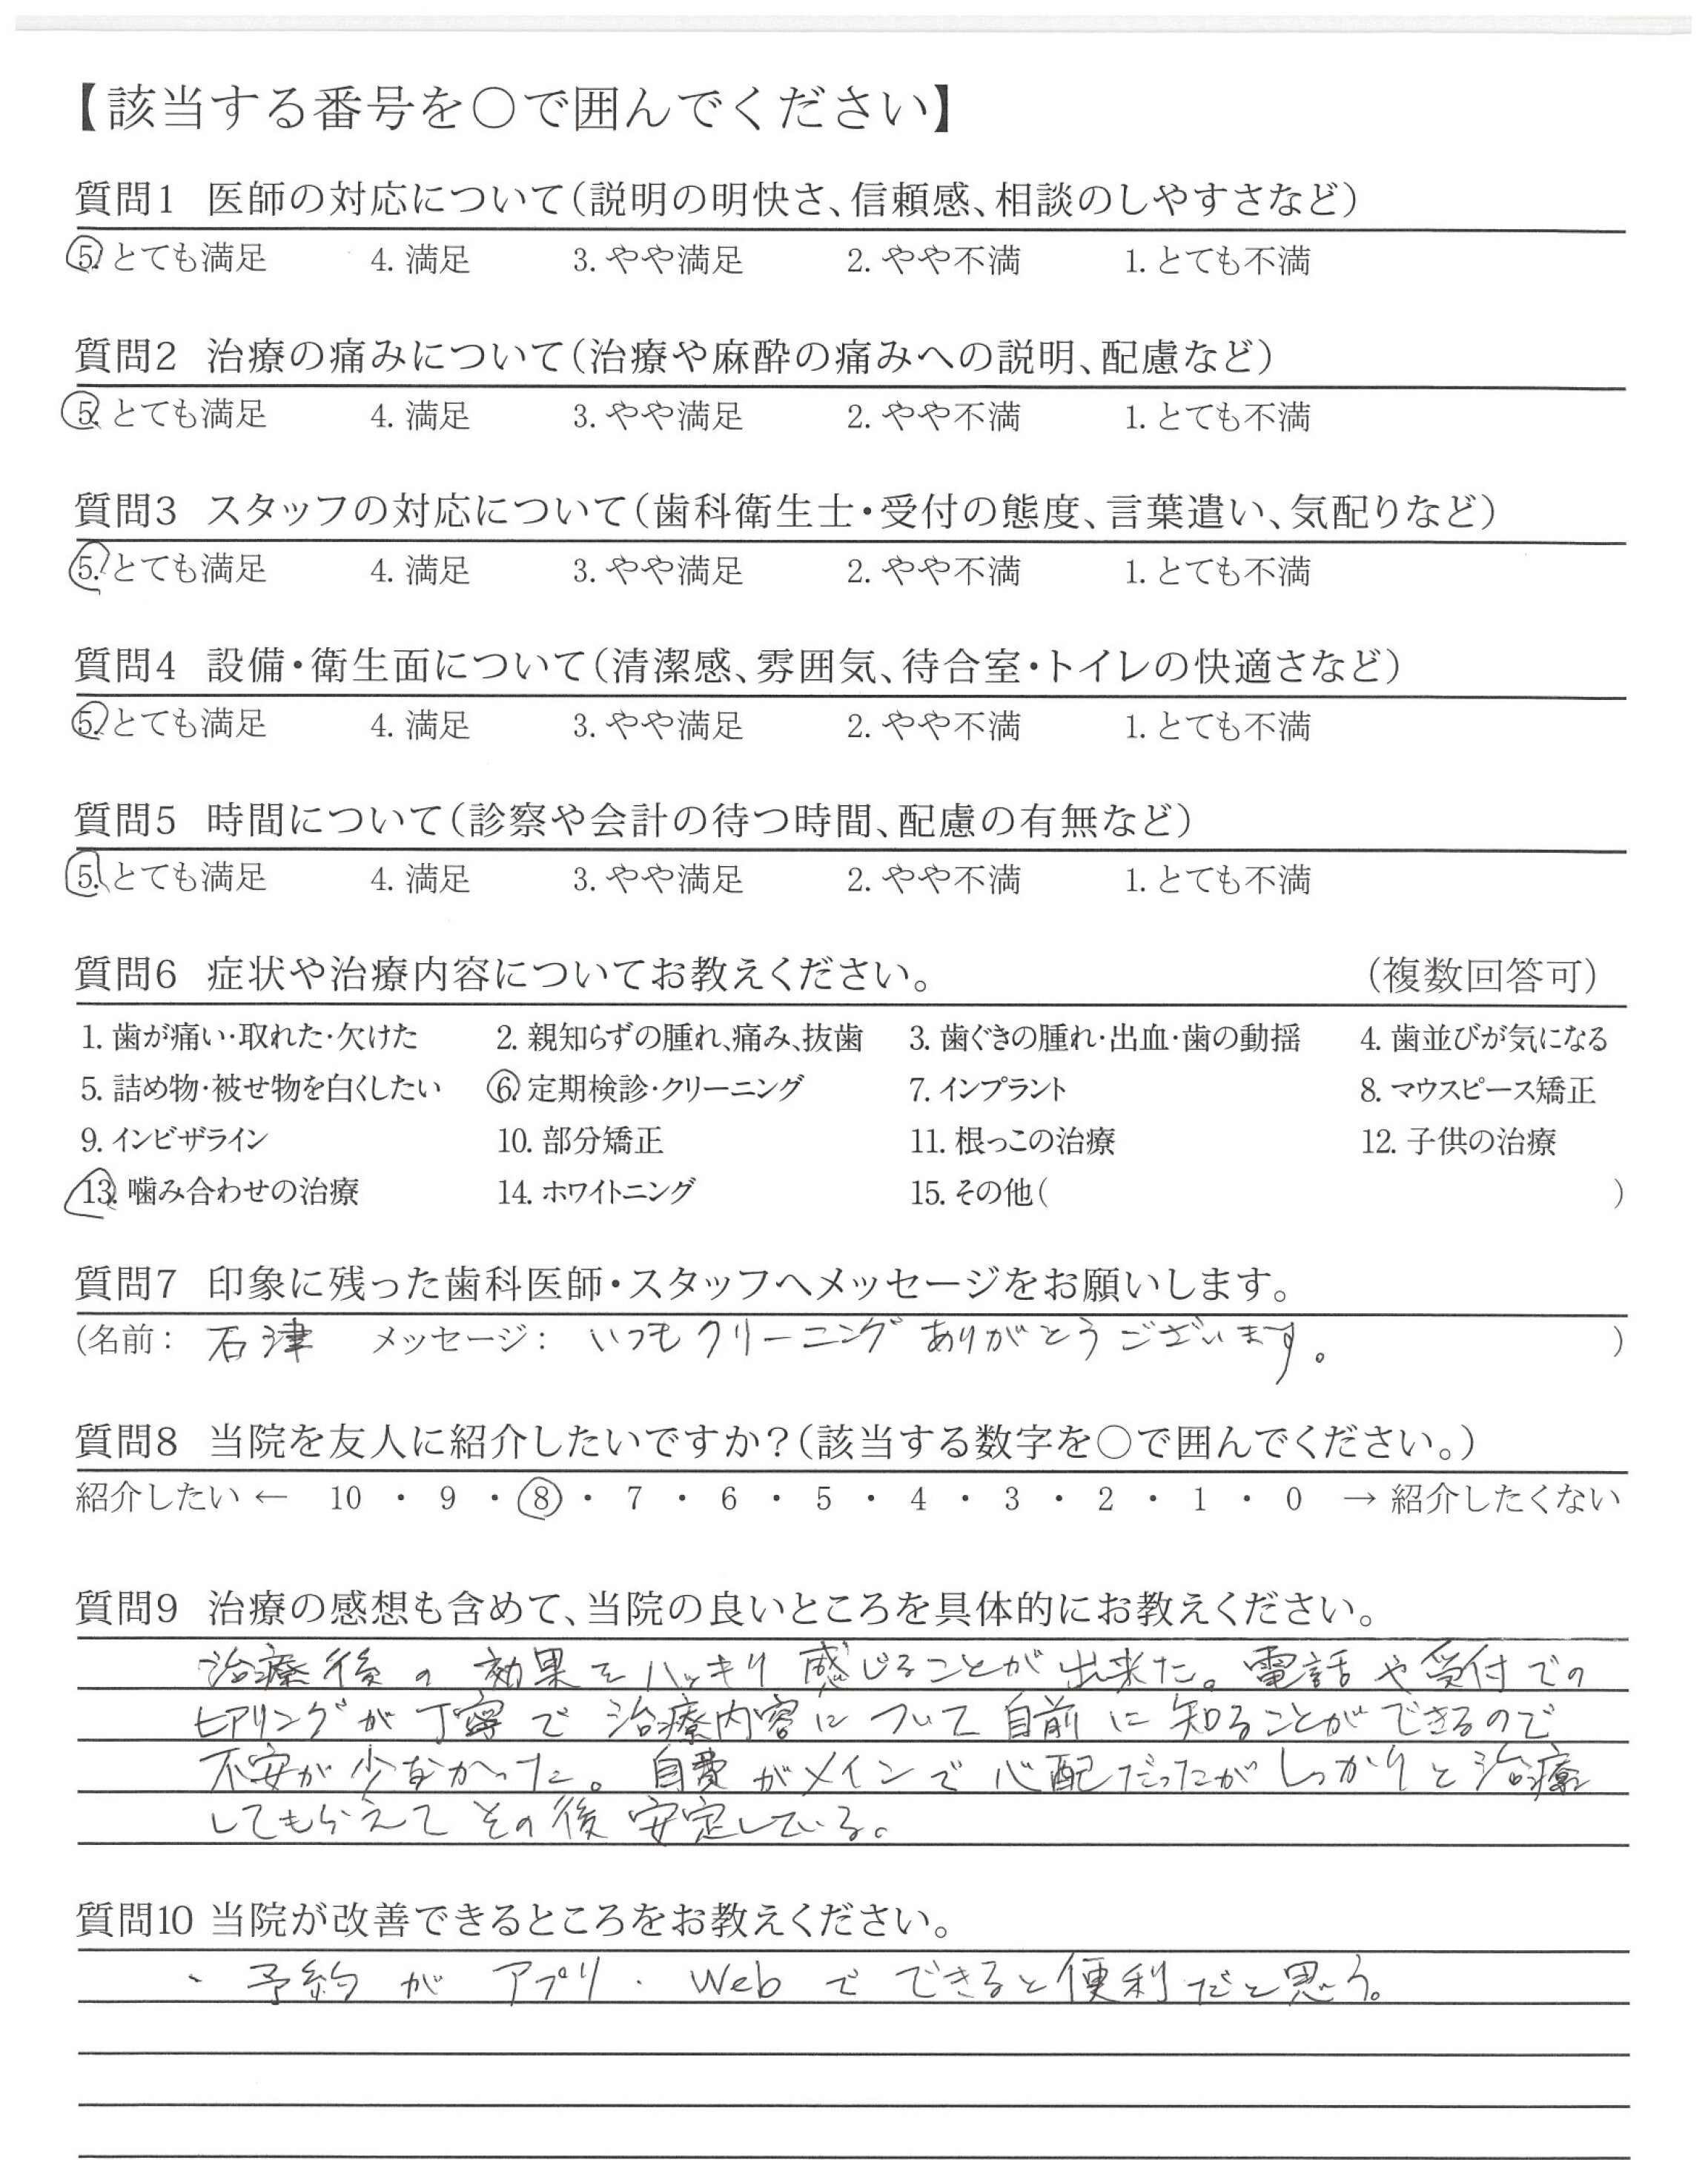 【該当する番号を○で囲んでください】
質問1 医師の対応について(説明の明快さ、信頼感、相談のしやすさなど)
5. とても満足 4. 満足 3. やや満足 2. やや不満 1. とても不満
質問2 治療の痛みについて(治療や麻酔の痛みへの説明、配慮など)
5. とても満足 4. 満足 3. やや満足 2. やや不満 1. とても不満
質問3 スタッフの対応について(歯科衛生士・受付の態度、言葉遣い、気配りなど)
5. とても満足 4. 満足 3. やや満足 2. やや不満 1. とても不満
質問4 設備・衛生面について(清潔感、雰囲気、待合室・トイレの快適さなど)
5. とても満足 4. 満足 3. やや満足 2. やや不満 1. とても不満
質問5 時間について(診察や会計の待つ時間、配慮の有無など)
5. とても満足 4. 満足 3. やや満足 2. やや不満 1. とても不満
質問6 症状や治療内容についてお教えください。 (複数回答可)
1. 歯が痛い・取れた・欠けた 2. 親知らずの腫れ、痛み、抜歯 3. 歯ぐきの腫れ・出血・歯の動揺 4. 歯並びが気になる
5. 詰め物・被せ物を白くしたい 6. 定期検診・クリーニング 7. インプラント 8. マウスピース矯正
9. インビザライン 10. 部分矯正 11. 根っこの治療 12. 子供の治療
13. 噛み合わせの治療 14. ホワイトニング 15. その他( )
質問7 印象に残った歯科医師・スタッフへメッセージをお願いします。
(名前: 石津 メッセージ: いつもクリーニングありがとうございます。 )
質問8 当院を友人に紹介したいですか?(該当する数字を○で囲んでください。)
紹介したい ← 10 ・ 9 ・ 8 ・ 7 ・ 6 ・ 5 ・ 4 ・ 3 ・ 2 ・ 1 ・ 0 → 紹介したくない
質問9 治療の感想も含めて、当院の良いところを具体的にお教えください。
治療後の効果をハッキリ感じることが出来た。電話や受付での
ヒアリングが丁寧で治療内容について自前に知ることができるので
不安が少なかった。自費がメインで心配だったがしっかりと治療
してもらえてその後安定している。
質問10 当院が改善できるところをお教えください。
・予約がアプリ・Webでできると便利だと思う。